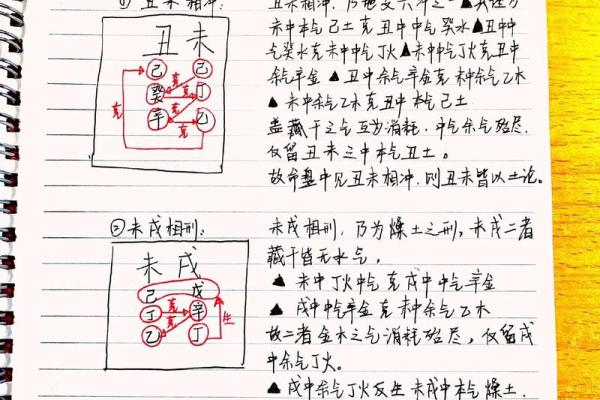 ① 丑未相冲：
丑 未
己 己
癸 丁
辛 乙
克 克 克 克
未中本气己土克丑中中气癸水▲丑中中
气癸水克未中中气丁火▲未中中气丁火克丑中
余气辛金 ▲ 丑中余气辛金克未中余气乙木
▲ 未中余气乙木克丑中本气己土
盖藏干之气互为消耗，中气余气殆尽，
仅留丑未之中本气丑土。
故命盘中见丑未相冲，则丑未皆以土论。
②未戌相刑：
未 戌
己 戊
丁 辛
乙 丁
克 克 生
未戌相刑，乃为燥土之刑，未戌二者
藏干皆无水气，
▲ 未中丁火中气克戌中中气辛金
▲ 戌中中气辛金克未中余气乙木
故二者金木之气消耗殆尽，仅留戌
中余气丁火。
▲ 戌中余气丁火反生未戌中本气燥土.